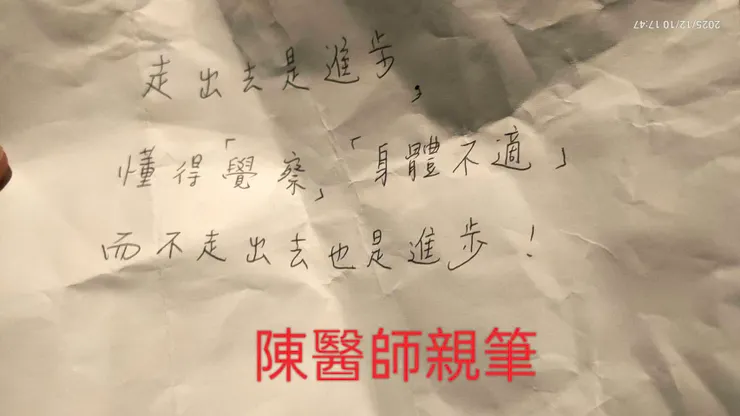 2025/12/10 17:47
走出去是進步,
懂得「覺察」「身體不適」
而不走出去也是進步!
陳醫師親筆